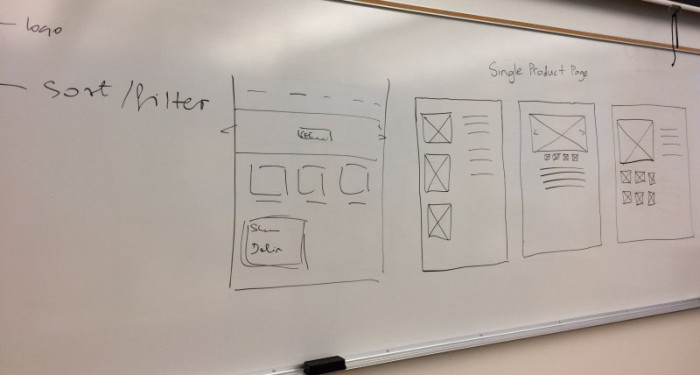 - logo
- Sort/filter
Single Product Page